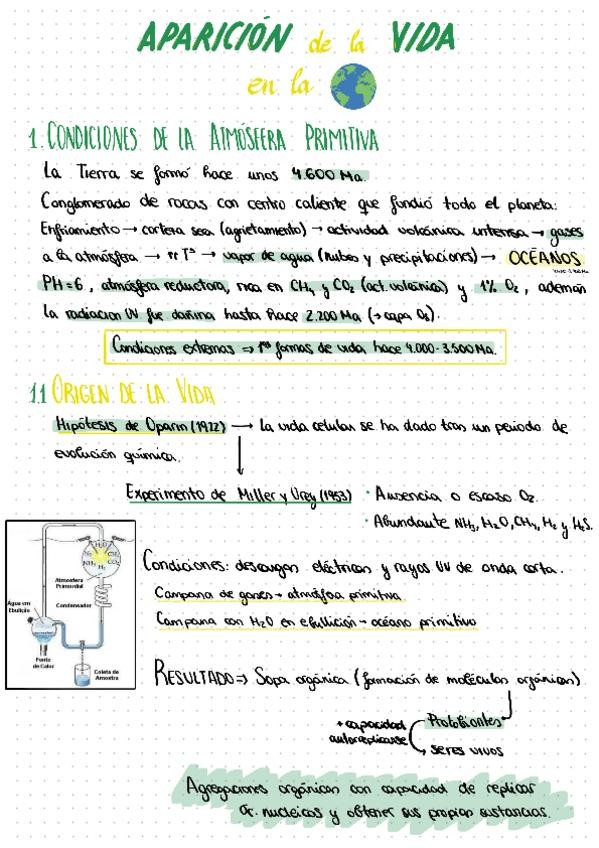 APARICIÓN de la VIDA
en la
1. CONDICIONES DE LA ATMÓSFERA PRIMITIVA
La Tierra se formó hace unos 4.600 Ma.
Conglomerado de rocas con centro caliente que fundió todo el planeta:
Enfriamiento → corteza sea (agrietamiento) → actividad volcánica intensa → gases
a la atmósfera → Tª → vapor de agua (nubes y precipitaciones) → OCÉANOS
PH=6, atmósfera reductora, rica en CH4 y CO2 (act. volcánica) y 1% O2, además
la radiacion UV fue dañina hasta hace 2.200 Ma (→ capa O3).
Condiciones extremas ⇒ 1ªs formas de vida hace 4.000-3.500 Ma.
1.1 ORIGEN DE LA VIDA
Hipótesis de Oparin (1922) → la vida celular se ha dado tras un periodo de
evolución química.
Experimento de Miller y Urey (1953) · Ausencia o escaso O2.
· Abundante NH3, H2O, CH4, H2 y H2S.
H2O
N2
CH4
NH3
H2
CO2
Atmosfera
Primordial
Água em
Ebulição
Condensador
Fonte
de Calor
Coleta de
Amostra
Condiciones: descargas eléctricas y rayos UV de onda corta.
Campana de gases → atmósfera primitiva
Campana con H2O en ebullición → océano primitivo
RESULTADO ⇒ Sopa orgánica (formación de moléculas orgánicas)
+ capacidad
autoreplicarse
Protobiontes
seres vivos
Agregaciones orgánicas con capacidad de replicar
ác. nucleicos y obtener sus propias sustancias.